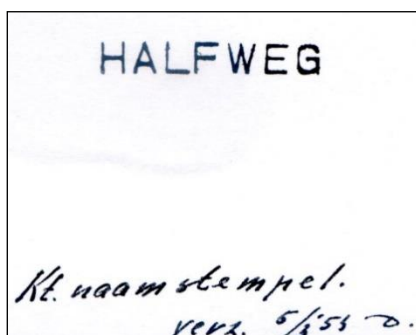 HALFWEG
Kt. naamstempel.
verz.